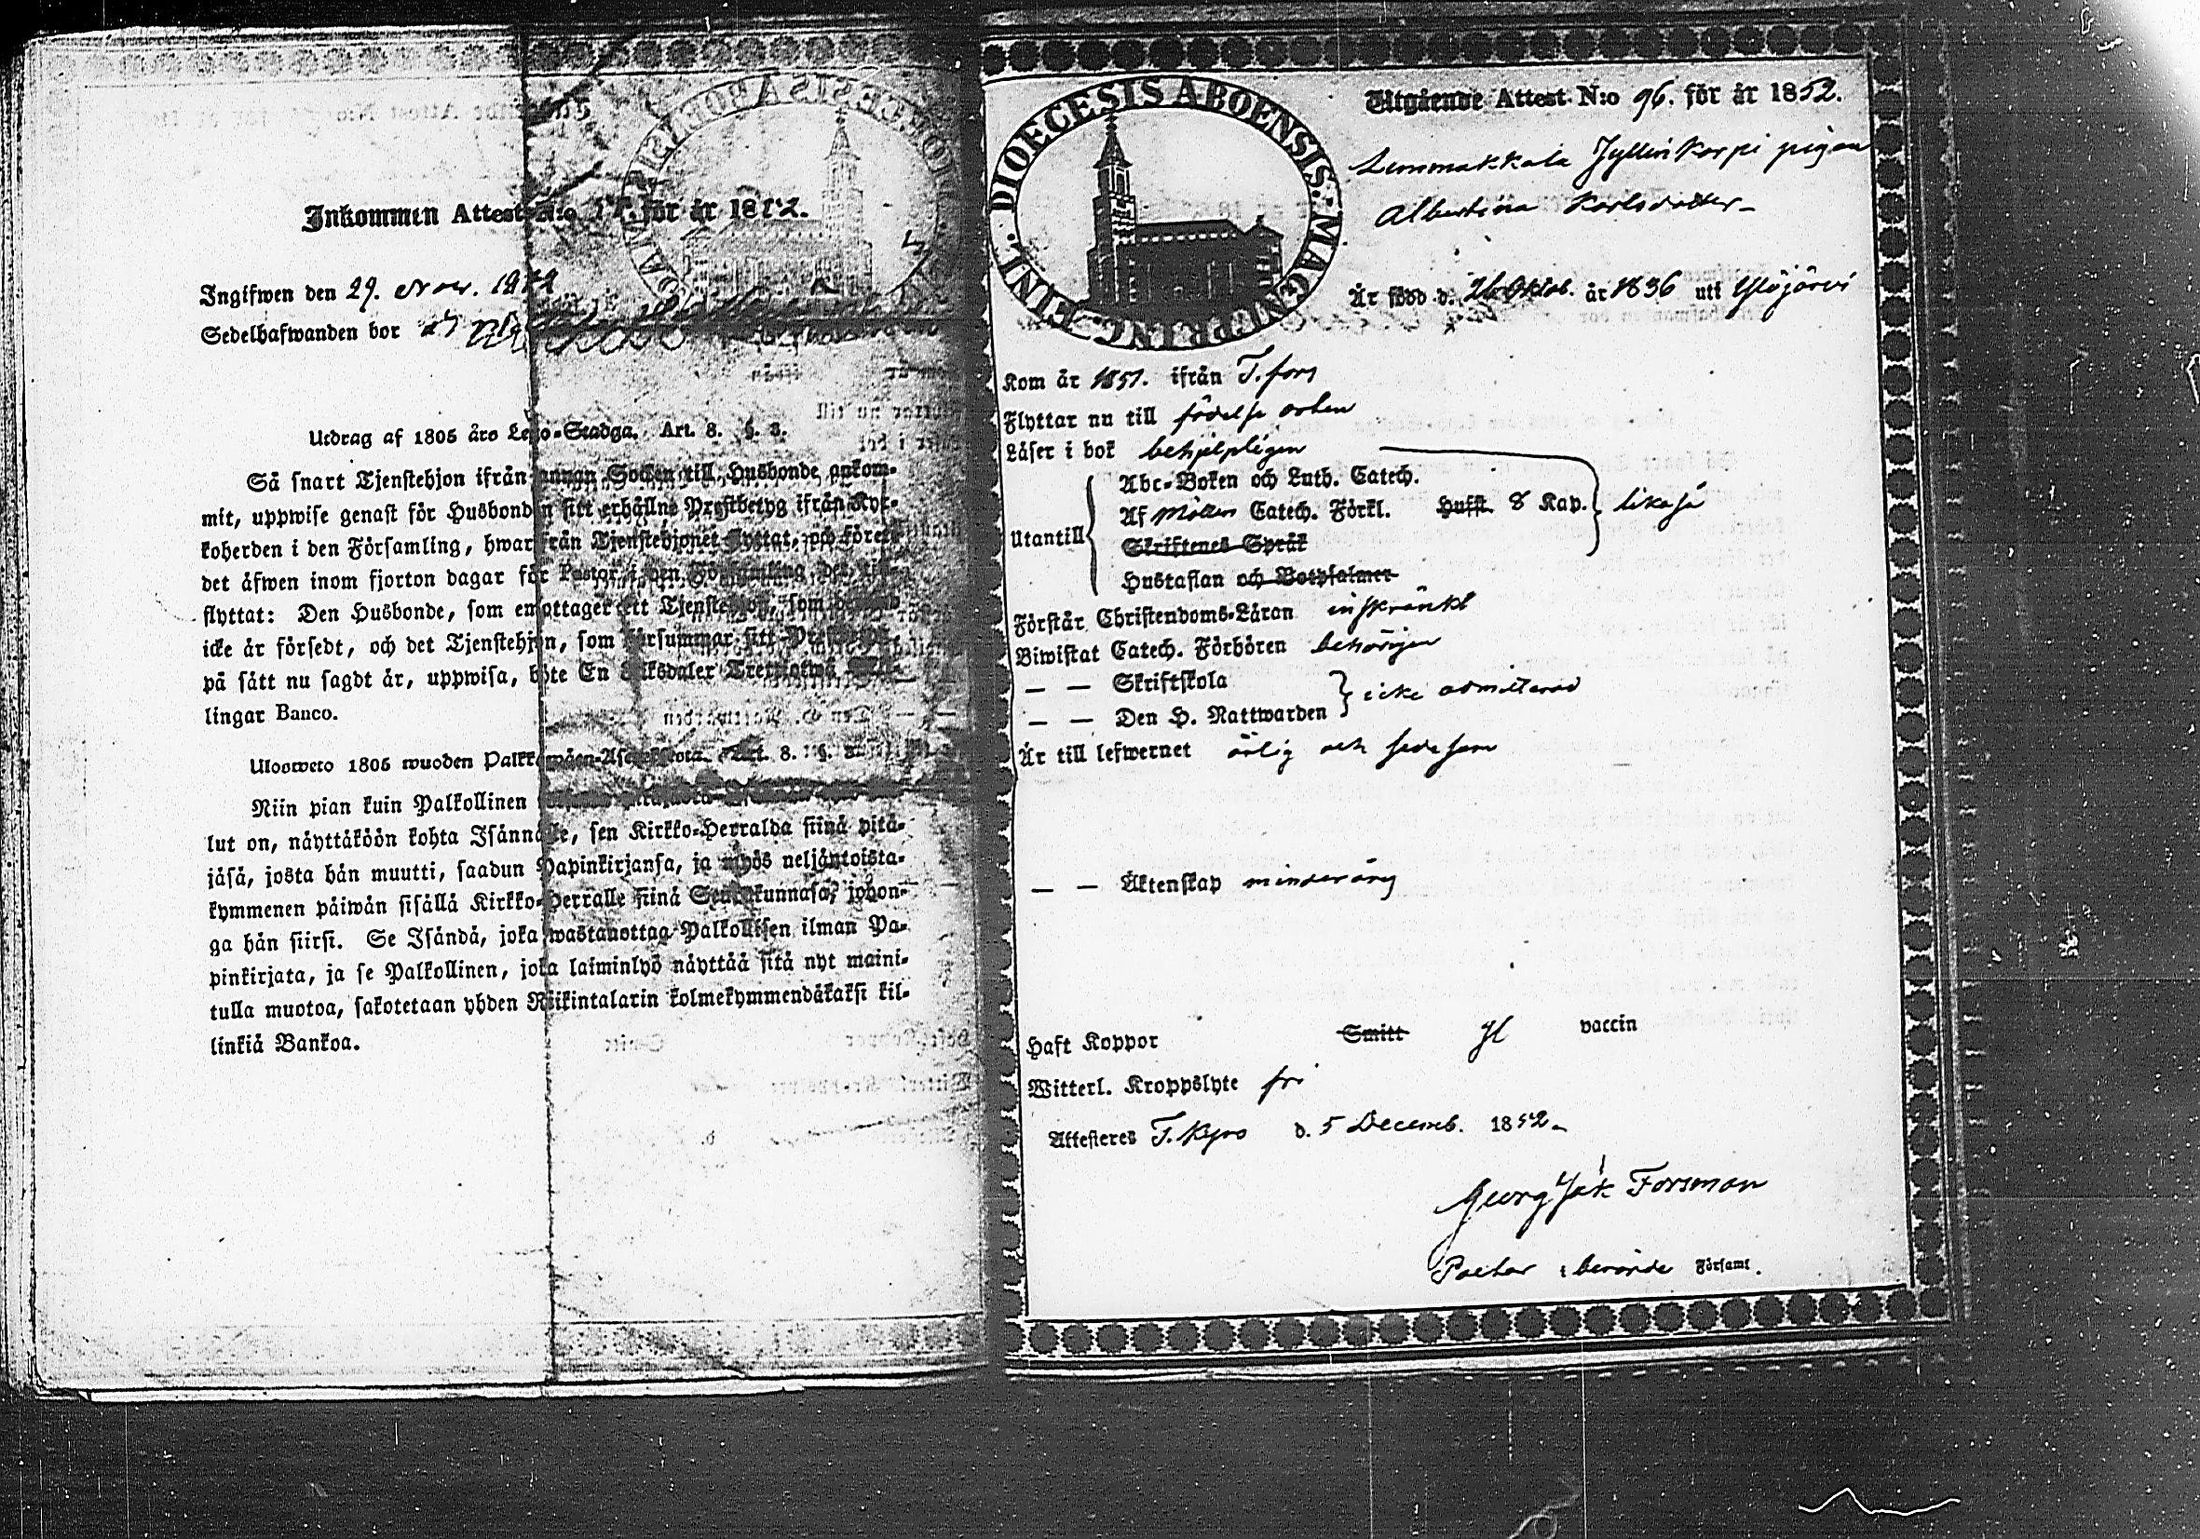 Inkommen Attest N:o för år 1852.
Ingifwen den 29. Nov. 18
Sedelhafwanden bor
Utdrag af 1805 års Lego-Stadga. Art. 8. §. 8.
Så snart Tjenstehjon ifrån annan Socken till Husbonde ankom-
mit, uppwise genast för Husbonden sitt erhållne Prestbetyg ifrån Kyr-
koherden i den Församling, hwarifrån Tjenstehjonet flyttat, och förete
det äfwen inom fjorton dagar för Pastor i den Församling det till-
flyttat: Den Husbonde, som emottager ett Tjenstehjon, som
icke är försedt, och det Tjenstehjon, som försummar sitt
på sätt nu sagdt är, uppwisa, böte En Riksdaler Trettiotwå Skil-
lingar Banco.
Uloswето 1805 wuoden Palkkawäen-Asetuksesta. Art. 8. §. 8.
Niin pian kuin Palkollinen
lut on, näyttäköön kohta Isännälle, sen Kirkko-Herralda siinä pitä-
jäsä, josta hän muutti, saadun Papinkirjansa, ja myös neljäntoista-
kymmenen päiwän sisällä Kirkko-Herralle siinä Seurakunnasa, johon-
ga hän siirsi. Se Isändä, joka wastanottaa Palkollisen ilman Pa-
pinkirjata, ja se Palkollinen, joka laiminlyö näyttää sitä nyt maini-
tulla muotoa, sakotetaan yhden Riikintalarin kolmekymmendäkaksi kil-
linkiä Bankoa.
DIOECESIS ABOENSIS. MAGN. PRINC. FINL.
Utgående Attest N:o 96. för år 1852.
Lemmakkala Jyllin Korpi pigan
Albertina Karlsdotter
Är född d. 26 Oktob. år 1836 uti Ylöjärvi
Kom år 1851. ifrån T.fors
Flyttar nu till födelse orten
Läser i bok behjelpligen
Abc-Boken och Luth. Catech.
Utantill Af Möllers Catech. Förkl. Husst. 8 Kap. likaså
Skriftenes Språk
Hustaflan och Botpsalmer
Förstår Christendoms-Läran inskränkt
Biwistat Catech. Förhören behörigen
— — Skriftskola
— — Den H. Nattwarden icke admitterad
Är till lefwernet ärlig och sedesam
— — Äktenskap minderårig
Haft Koppor Smitt vaccin
Witterl. Kroppslyte fri
Attesteres T. Kyro d. 5 Decemb. 1852
Georg Jak Forsman
Pastor i berörde Församl.